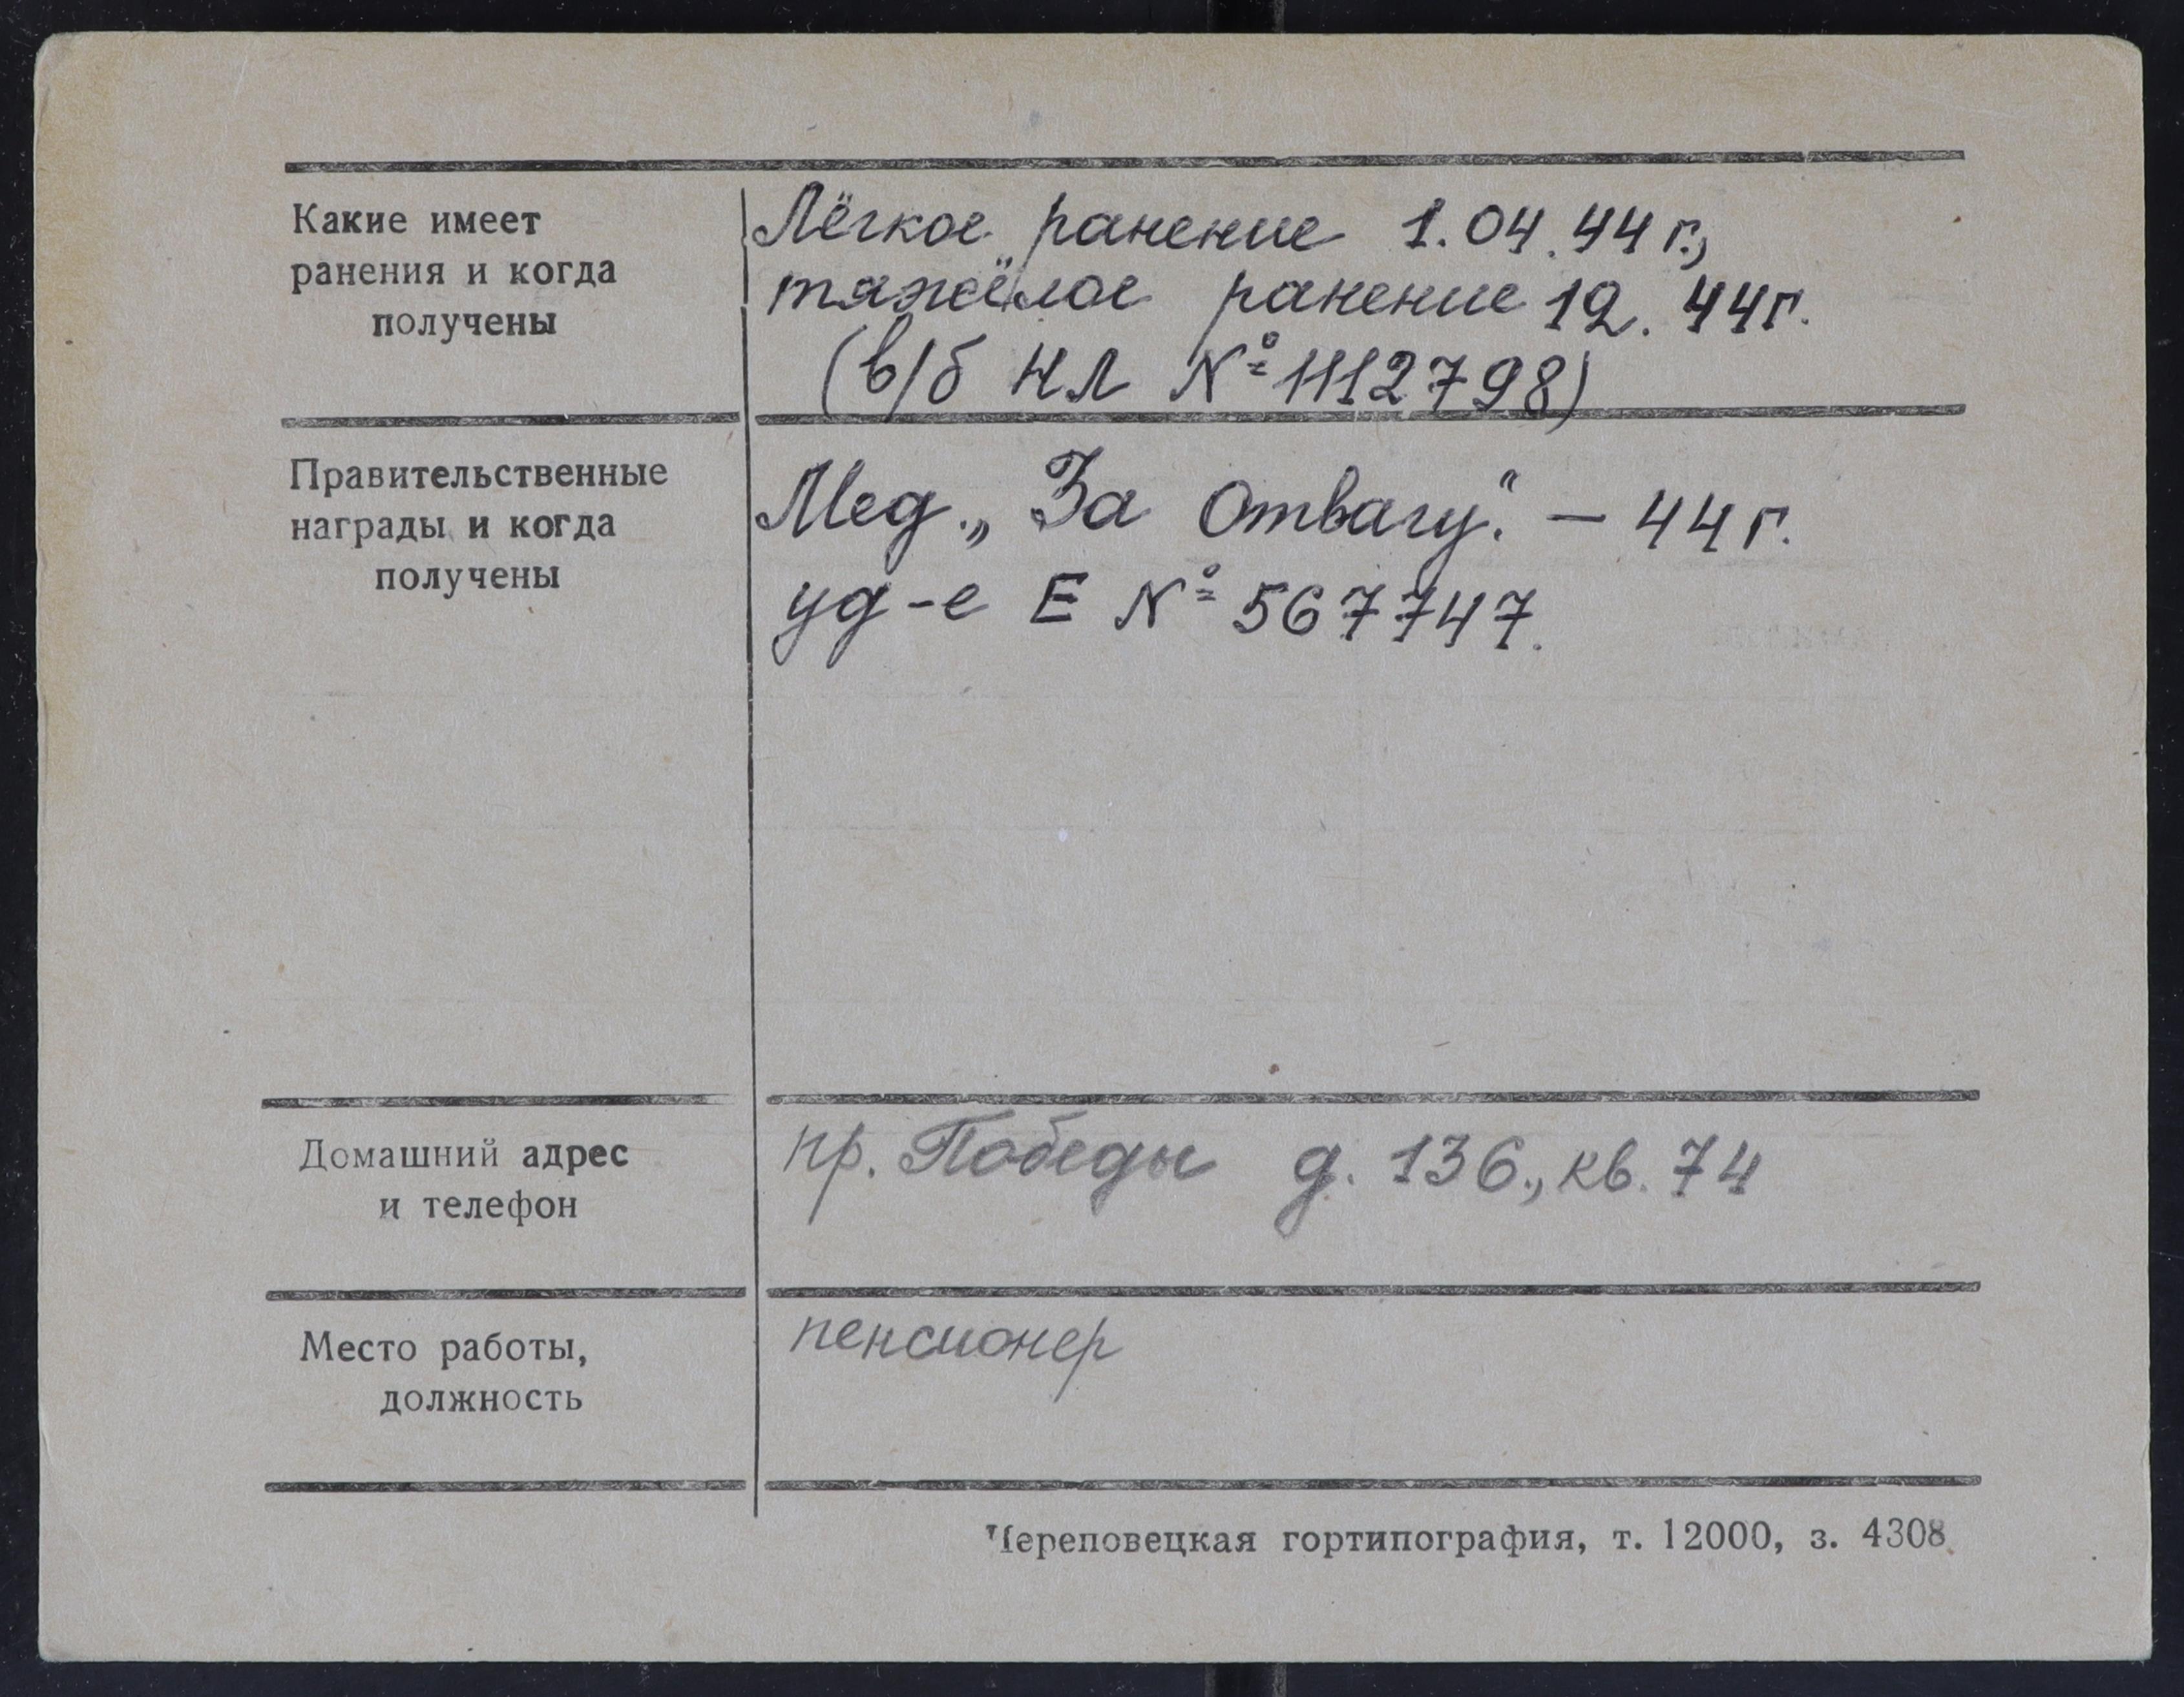 Какие имеет
ранения и когда
получены
Лёгкое ранение 1.04.44 г.,
тяжёлое ранение 12. 44г.
(в/б НЛ № 1112798)
Правительственные
награды и когда
получены
Мед. „За Отвагу". — 44 г.
уд-е Е № 567747.
Домашний адрес
и телефон
пр. Победы д. 136., кв. 74
Место работы,
должность
пенсионер
Череповецкая гортипография, т. 12000, з. 4308